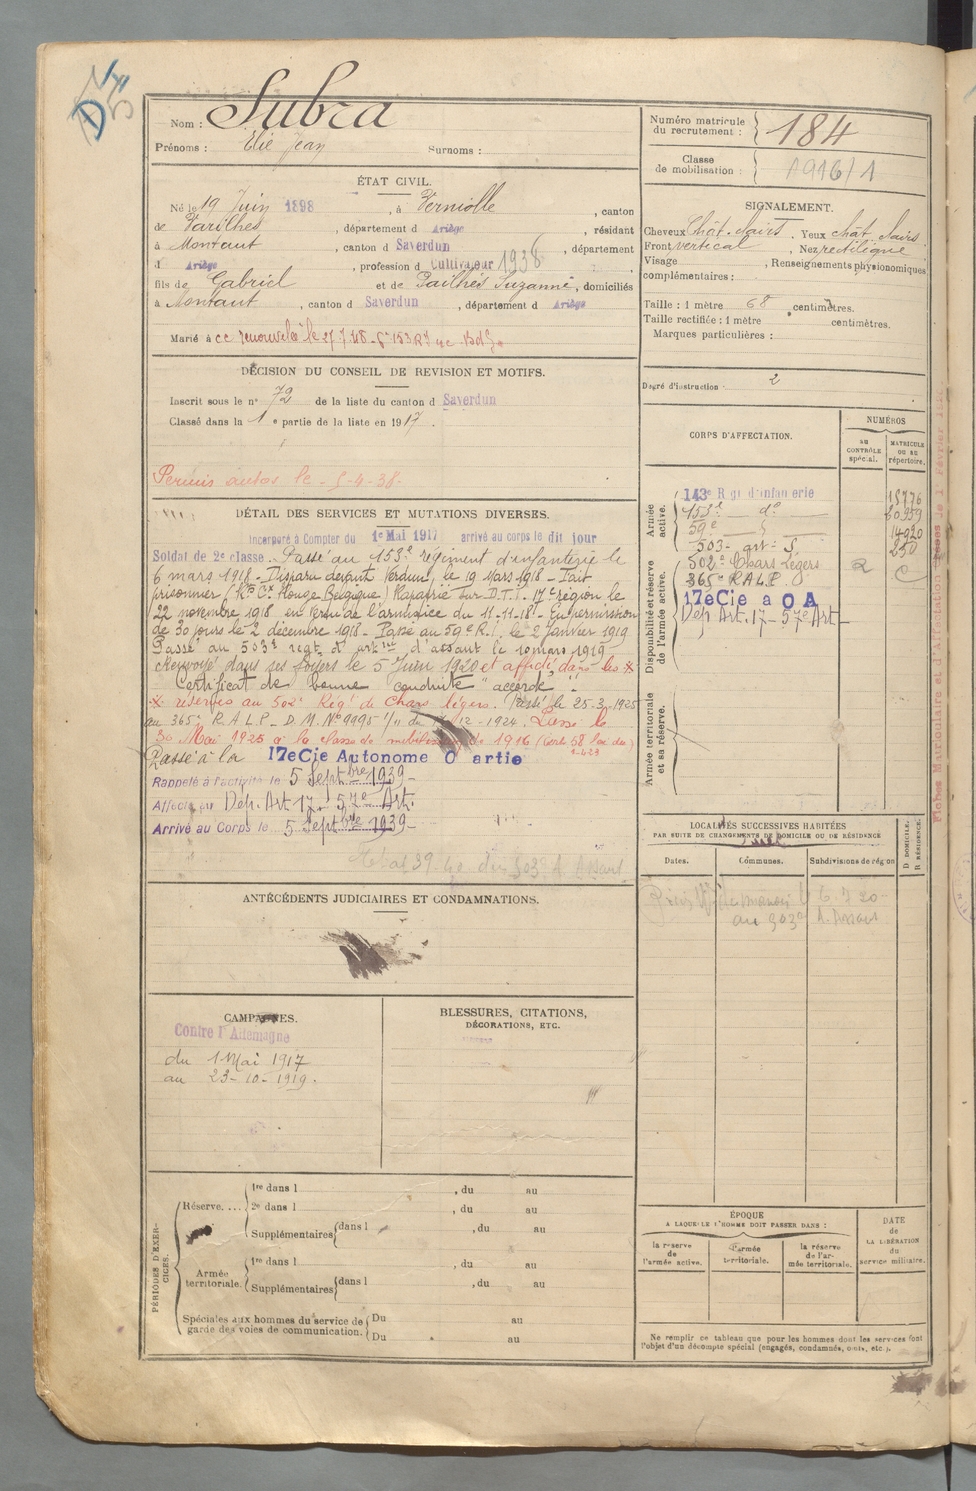 Nom : Subra
Prénoms : Elie Jean Surnoms :
ÉTAT CIVIL.
Né le 19 Juin 1898, à Verniolle, canton
de Varilhes, département d Ariège, résidant
à Montaut, canton d Saverdun, département
d Ariège, profession d Cultivateur 1938
fils de Gabriel et de Pailhès Suzanne, domiciliés
à Montaut, canton d Saverdun, département d Ariège
Marié à cc renouvelé le 27.7.48
DÉCISION DU CONSEIL DE REVISION ET MOTIFS.
Inscrit sous le n° 72 de la liste du canton d Saverdun
Classé dans la 1e partie de la liste en 1917.
Permis autos le 5-4-38-
DÉTAIL DES SERVICES ET MUTATIONS DIVERSES.
Incorporé à Compter du 1e Mai 1917 arrivé au corps le dit jour
Soldat de 2e classe. Passé au 153e régiment d'infanterie le
6 mars 1918 - Disparu devant Verdun, le 19 Mars 1918 - Fait
prisonnier (Rt Cx Rouge Belgique) Rapatrié sur D.T.I. 17e région le
22 novembre 1918 en vertu de l'armistice du 11-11-18 - En permission
de 30 jours le 2 décembre 1918 - Passé au 59e R.I. le 2 Janvier 1919
Passé au 503e regt d'artrie d'assaut le 10 mars 1919
Renvoyé dans ses foyers le 5 Juin 1920 et affecté dans les x
Certificat de bonne conduite "accordé"
x réserves au 502e Régt de Chars légers. Passé le 25-3-1925
au 365e R.A.L.P. D.M. N° 9995 1/11 du 12-1924. Passé le
30 Mai 1925 à la classe de mobilisation de 1916 (art. 58 loi du
Passé à la 17eCie Autonome O artie
Rappelé à l'activité le 5 Septbre 1939-
Affecté au Dép. Art. 17 - 57e Art.
Arrivé au Corps le 5 Septbre 1939-
ANTÉCÉDENTS JUDICIAIRES ET CONDAMNATIONS.
CAMPAGNES.
Contre l'Allemagne
du 1 Mai 1917
au 23-10-1919.
BLESSURES, CITATIONS,
DÉCORATIONS, ETC.
PÉRIODES D'EXERCICES.
Réserve.... 1re dans l , du au
2e dans l , du au
Supplémentaires dans l , du au
Armée territoriale. 1re dans l , du au
Supplémentaires dans l , du au
Spéciales aux hommes du service de garde des voies de communication. Du au
Du au
Numéro matricule
du recrutement : 184
Classe
de mobilisation : 1916/1
SIGNALEMENT.
Cheveux Chât. clairs. Yeux chât. clairs
Front vertical, Nez rectiligne
Visage , Renseignements physionomiques
complémentaires :
Taille : 1 mètre 68 centimètres.
Taille rectifiée : 1 mètre centimètres.
Marques particulières :
Degré d'instruction : 2
CORPS D'AFFECTATION.
NUMÉROS
AU CONTRÔLE spécial.
MATRICULE OU AU répertoire.
Armée active.
143e Rgt d'infanterie 15776
153e do
59e 14920
503 - art - S 250
Disponibilité et réserve de l'armée active.
502e Chars légers
365e R.A.L.P.
17eCie a O A
Dép. Art. 17 - 57e Art.
Armée territoriale et sa réserve.
LOCALITÉS SUCCESSIVES HABITÉES
PAR SUITE DE CHANGEMENTS DE DOMICILE OU DE RÉSIDENCE
Dates. Communes. Subdivisions de région
D DOMICILE. R RÉSIDENCE.
6.7 20
au 503e A. Assaut
ÉPOQUE
A LAQUELLE L'HOMME DOIT PASSER DANS :
la réserve de l'armée active.
l'armée territoriale.
la réserve de l'armée territoriale.
DATE
de
LA LIBÉRATION
du
service militaire.
Ne remplir ce tableau que pour les hommes dont les services font
l'objet d'un décompte spécial (engagés, condamnés, omis, etc.).